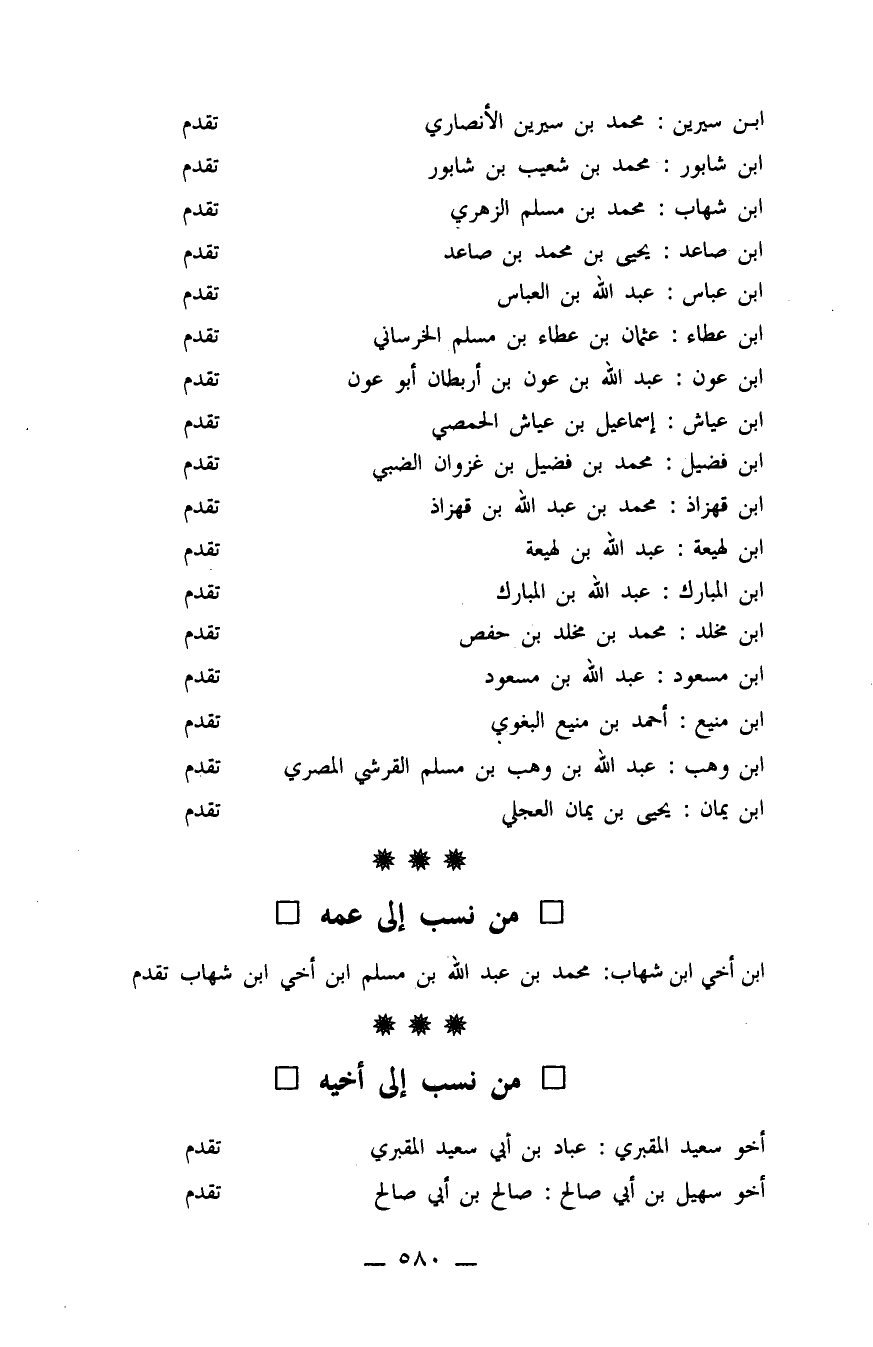 ابن سيرين : محمد بن سيرين الأنصاري تقدم
ابن شابور : محمد بن شعيب بن شابور تقدم
ابن شهاب : محمد بن مسلم الزهري تقدم
ابن صاعد : يحيى بن محمد بن صاعد تقدم
ابن عباس : عبد الله بن العباس تقدم
ابن عطاء : عثمان بن عطاء بن مسلم الخرساني تقدم
ابن عون : عبد الله بن عون بن أربطان أبو عون تقدم
ابن عياش : إسماعيل بن عياش الحمصي تقدم
ابن فضيل : محمد بن فضيل بن غزوان الضبي تقدم
ابن قهزاذ : محمد بن عبد الله بن قهزاذ تقدم
ابن لهيعة : عبد الله بن لهيعة تقدم
ابن المبارك : عبد الله بن المبارك تقدم
ابن مخلد : محمد بن مخلد بن حفص تقدم
ابن مسعود : عبد الله بن مسعود تقدم
ابن منيع : أحمد بن منيع البغوي تقدم
ابن وهب : عبد الله بن وهب بن مسلم القرشي المصري تقدم
ابن يمان : يحيى بن يمان العجلي تقدم
❋ ❋ ❋
□ من نسب إلى عمه □
ابن أخي ابن شهاب: محمد بن عبد الله بن مسلم ابن أخي ابن شهاب تقدم
❋ ❋ ❋
□ من نسب إلى أخيه □
أخو سعيد المقبري : عباد بن أبي سعيد المقبري تقدم
أخو سهيل بن أبي صالح : صالح بن أبي صالح تقدم
— ٥٨٠ —